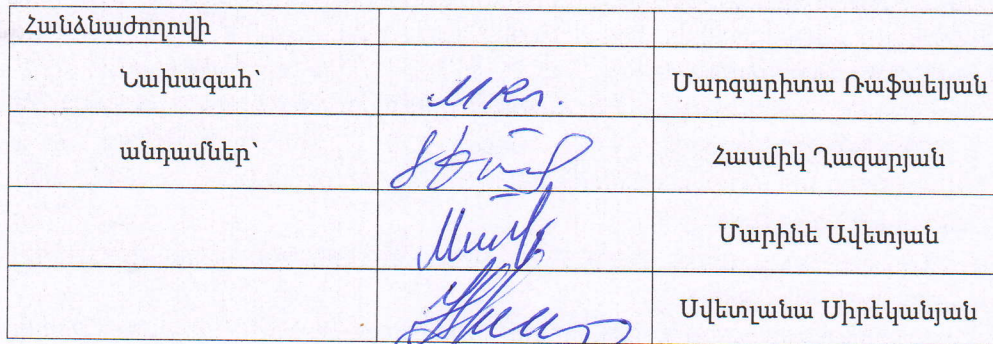 Հանձնաժողովի
Նախագահ՝ Մարգարիտա Ռաֆաելյան
անդամներ՝ Հասմիկ Ղազարյան
Մարինե Ավետյան
Սվետլանա Սիրեկանյան